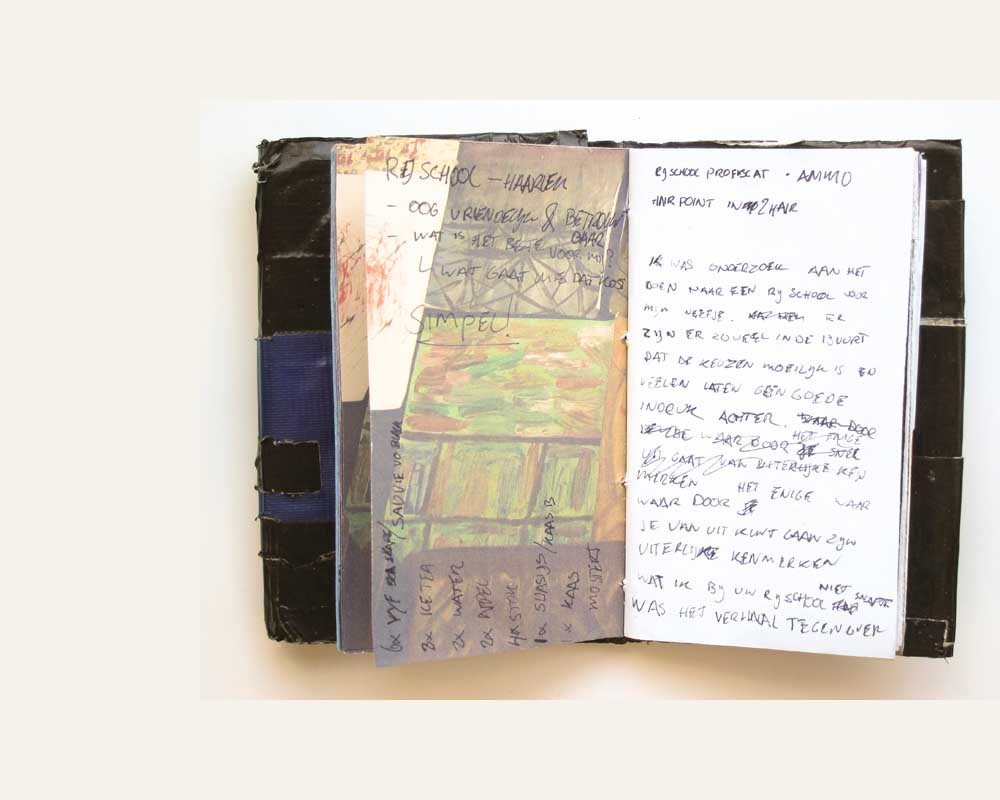 RIJSCHOOL - HAARLEM
- OOG VRIENDELIJK & BETROUW
BAAR
- WAT IS HET BESTE VOOR MIJ?
WAT GAAT ME DAT KOS
SIMPEL!
6x
2x ICE TEA
2x WATER
2x APPEL
1x KAAS B
x KAAS
MOSTERT
RIJSCHOOL PROFISCAT · AMMO
HAIRPOINT IN 2 HAIR
IK WAS ONDERZOEK AAN HET
DOEN NAAR EEN RIJSCHOOL VOOR
MIJN NEEFJE. ER
ZIJN ER ZOVEEL IN DE BUURT
DAT DE KEUZEN MOEILIJK IS EN
VEELEN LATEN GEEN GOEDE
INDRUK ACHTER. WAAR DOOR
WAAR DOOR HET ENIGE
GAAT VAN UITERLIJKE KEN
MERKEN HET ENIGE WAAR
WAAR DOOR
JE VAN UIT KUNT GAAN ZIJN
UITERLIJKE KENMERKEN
WAT IK BIJ UW RIJSCHOOL NIET
WAS HET VERHAAL TEGENOVER